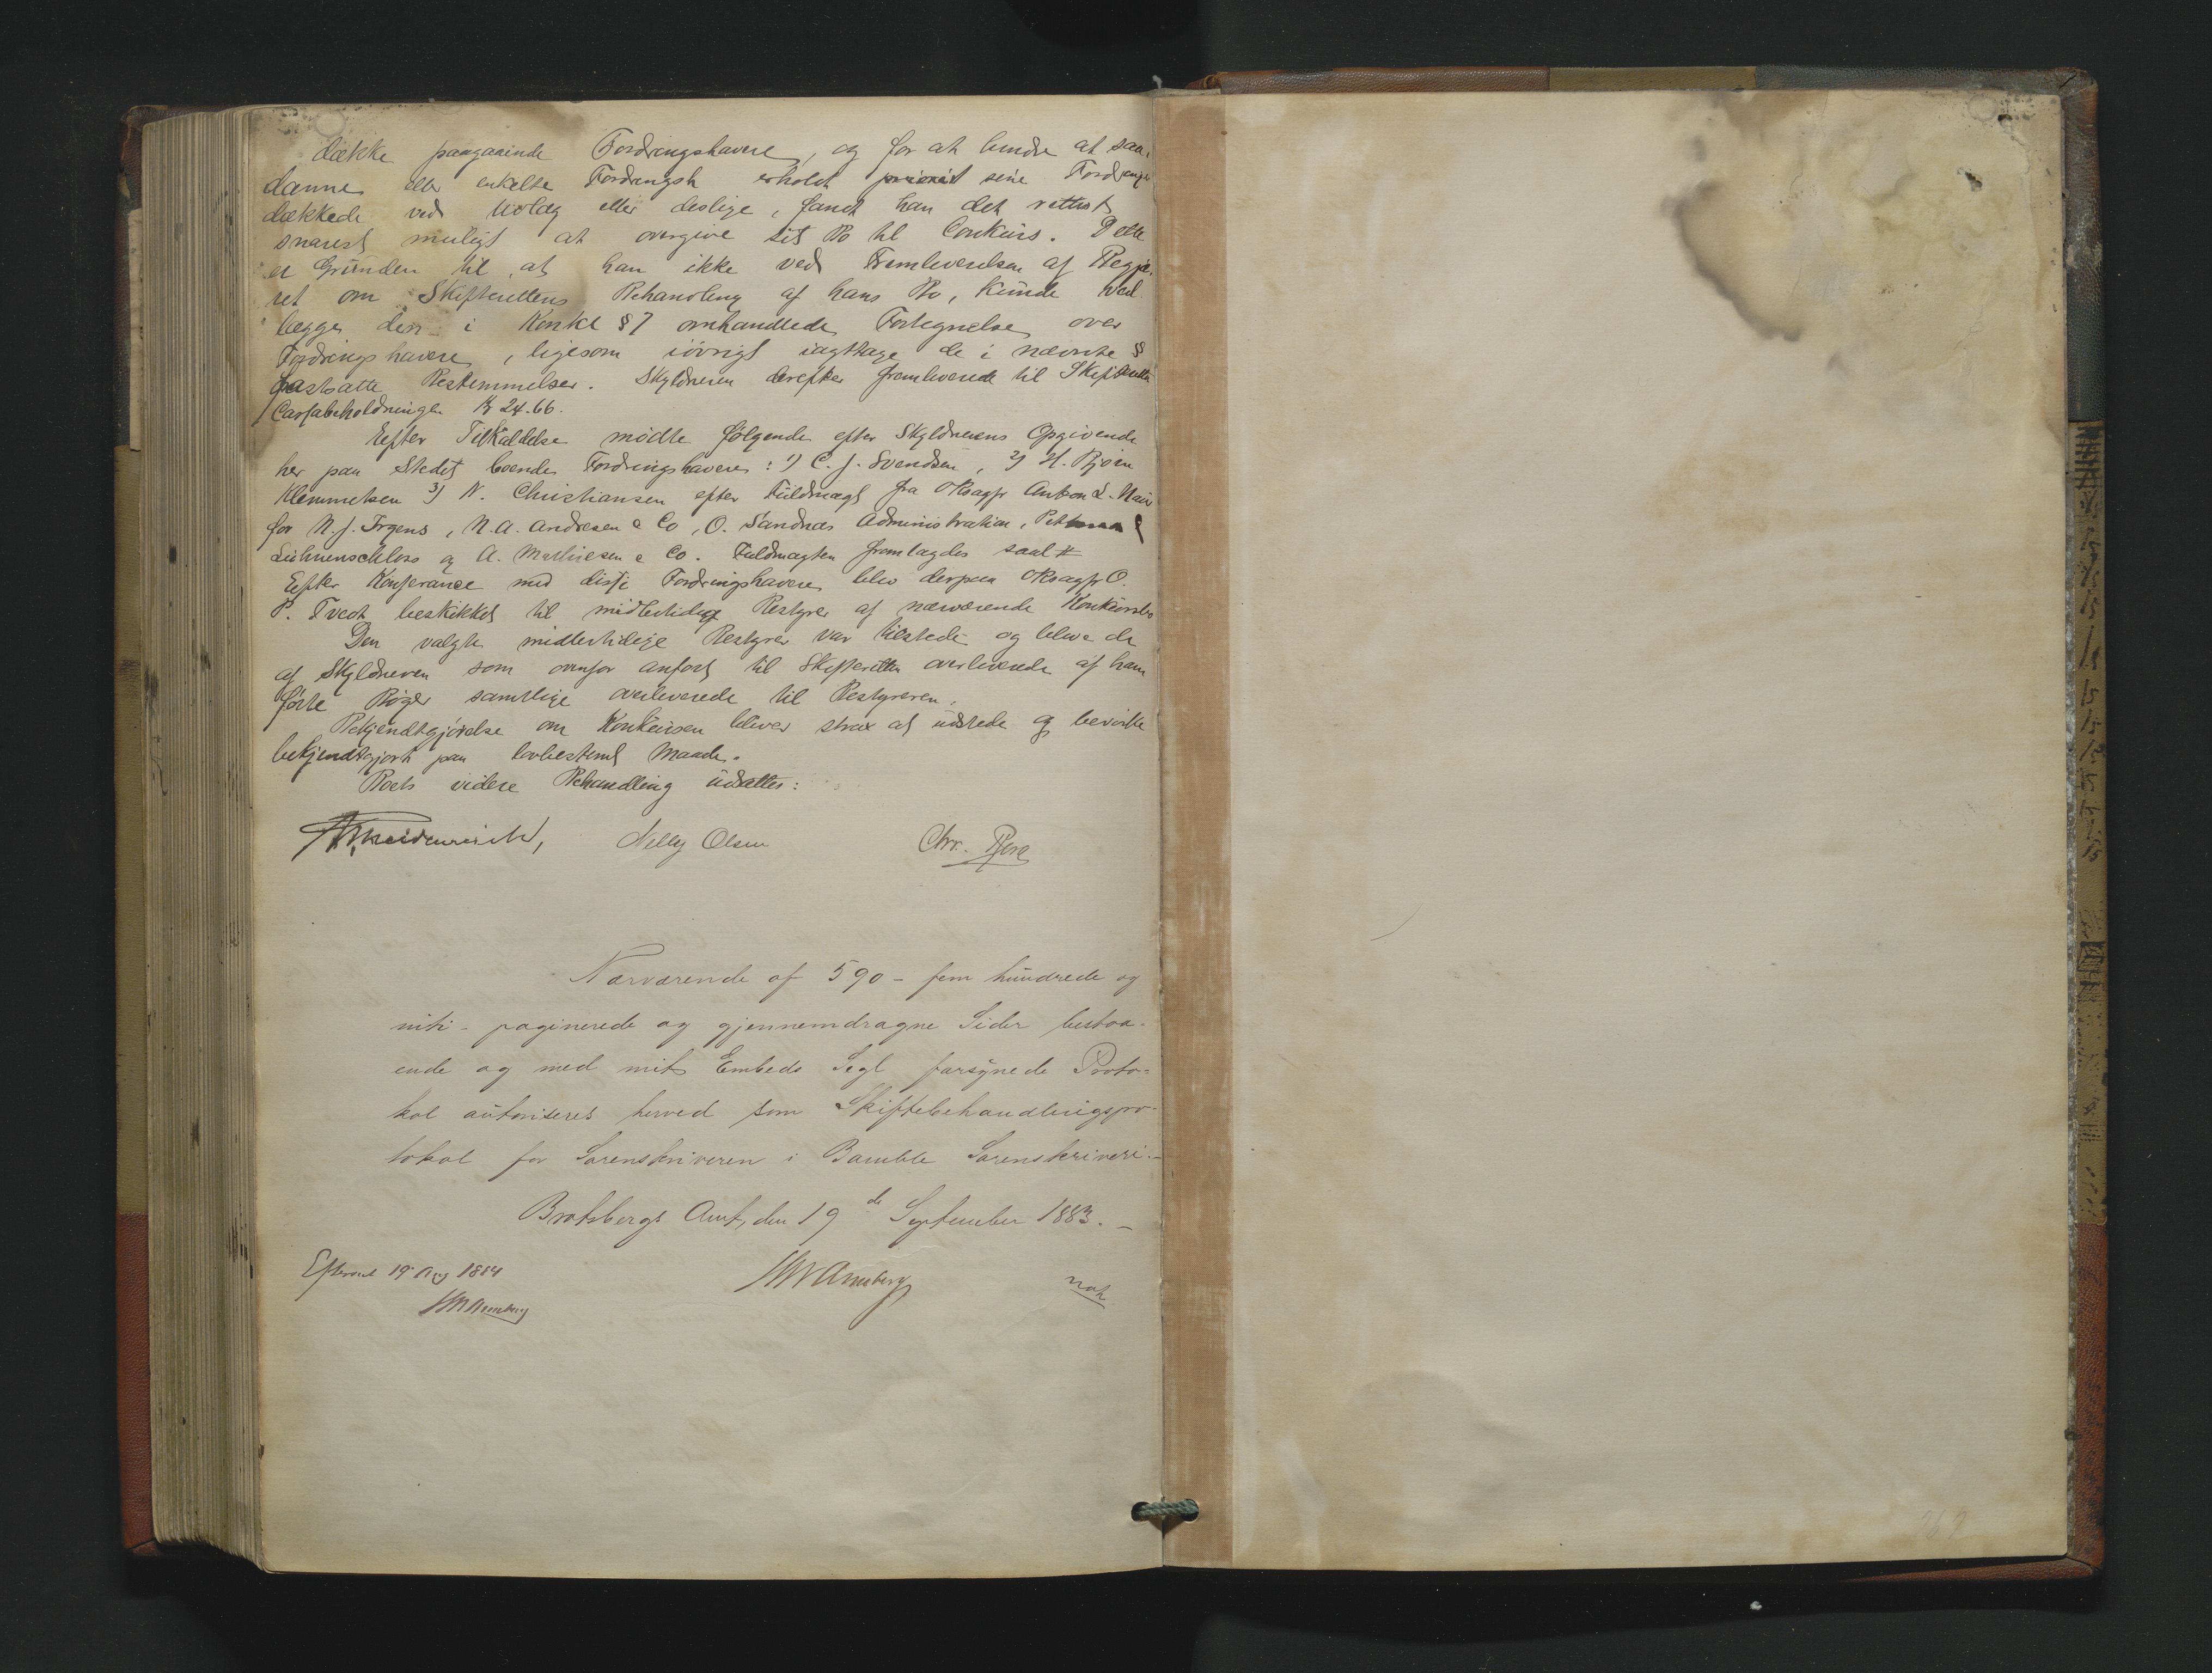 dække paagaaende Fordringshavere, og for at hindre at saa-
danne eller enkelte Fordringsh erholdt sine Fordringer
dækkede ved Udlæg eller deslige, fandt han det rettest
snarest muligt at overgive sit Bo til Conkurs. Dette
er Grunden til, at han ikke ved Fremleverelsen af Begjæ-
ret om Skifterettens Behandling af hans Bo, kunde ved-
lægge den i Konkl § 7 omhandlede Fortegnelse over
Fordringshavere, ligesom iøvrigt iagttage de i nævnte §
fastsatte Bestemmelser. Skyldneren derefter fremleverede til Skifteretten
Cassabeholdningen Kr 24.66.
Efter Tilkaldelse mødte følgende efter Skyldnerens Opgivende
her paa Stedet boende Fordringshavere: 1) C. J. Svendsen, 2) H. Bjørn
Klemmetsen 3) N. Christiansen efter Fuldmagt fra Oksagfr Anton L.
for N. J. Irgens, N. A. Andresen & Co, O. Sandnæs Administration,
Lühnenschloss og A. Mathiesen & Co. Fuldmagten fremlagdes saal #
Efter Konferance med disse Fordringshavere blev derpaa Oksagfr O.
P. Tvedt beskikket til midlertidig Bestyrer af nærværende Konkursbo
Den valgte midlertidige Bestyrer var tilstede og bleve de
af Skyldneren som ovenfor anført til Skifteretten overleverede af ham
førte Bøger samtlige overleverede til Bestyreren.
Bekjendtgjørelse om Konkursen bliver strax at udstede og bevirke
bekjendtgjort paa lovbestemt Maade.
Boets videre Behandling udsattes:
Nelly Olsen Chr.
Nærværende af 590 - fem hundrede og
niti - paginerede og gjennemdragne Sider bestaa-
ende og med mit Embeds Segl forsynede Proto-
kol autoriseres herved som Skiftebehandlingspro-
tokol for Sorenskriveren i Bamble Sorenskriveri.-
Bratsbergs Amt, den 19de September 1883. -
Efterseet 19 Aug 1884